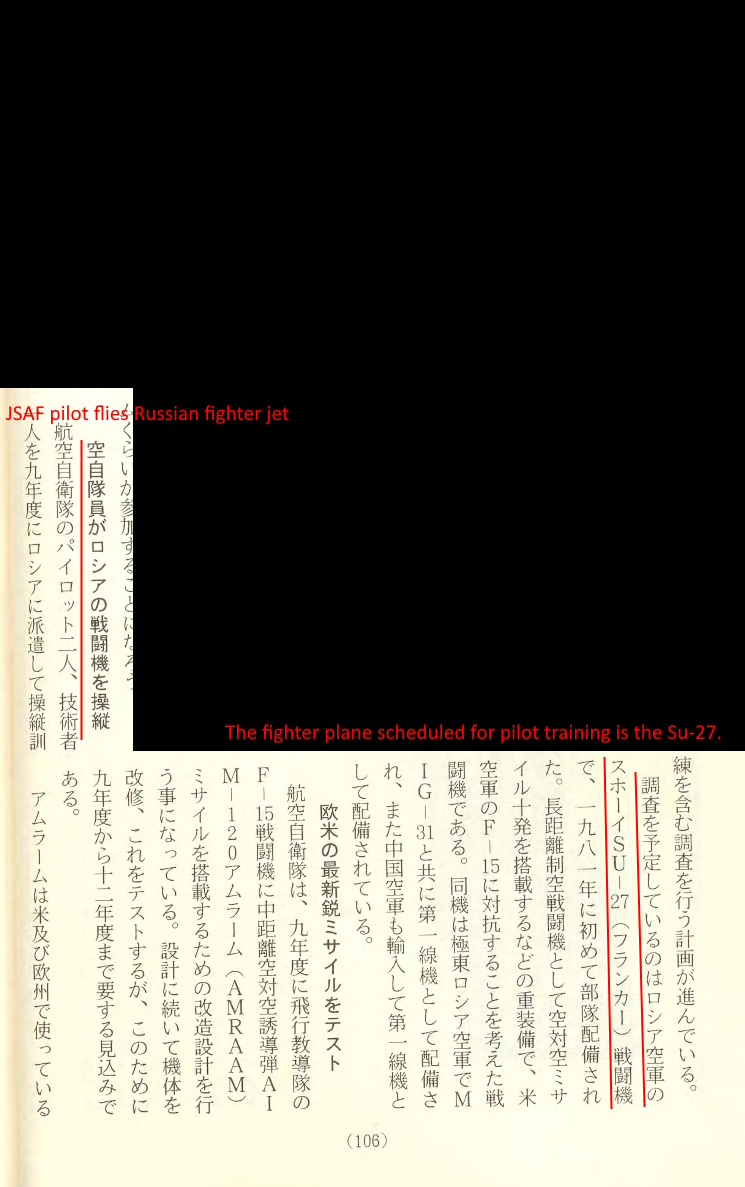 JSAF pilot flies Russian fighter jet
くらいが参加することになろう
空自隊員がロシアの戦闘機を操縦
航空自衛隊のパイロット二人、技術者
人を九年度にロシアに派遣して操縦訓
The fighter plane scheduled for pilot training is the Su-27.
練を含む調査を行う計画が進んでいる。
調査を予定しているのはロシア空軍の
スホーイSU-27(フランカー)戦闘機
で、一九八一年に初めて部隊配備され
た。長距離制空戦闘機として空対空ミサ
イル十発を搭載するなどの重装備で、米
空軍のF-15に対抗することを考えた戦
闘機である。同機は極東ロシア空軍でM
IG-31と共に第一線機として配備さ
れ、また中国空軍も輸入して第一線機と
して配備されている。
欧米の最新鋭ミサイルをテスト
航空自衛隊は、九年度に飛行教導隊の
F-15戦闘機に中距離空対空誘導弾AI
M-120アムラーム(AMRAAM)
ミサイルを搭載するための改造設計を行
う事になっている。設計に続いて機体を
改修、これをテストするが、このために
九年度から十二年度まで要する見込みで
ある。
アムラームは米及び欧州で使っている
(106)